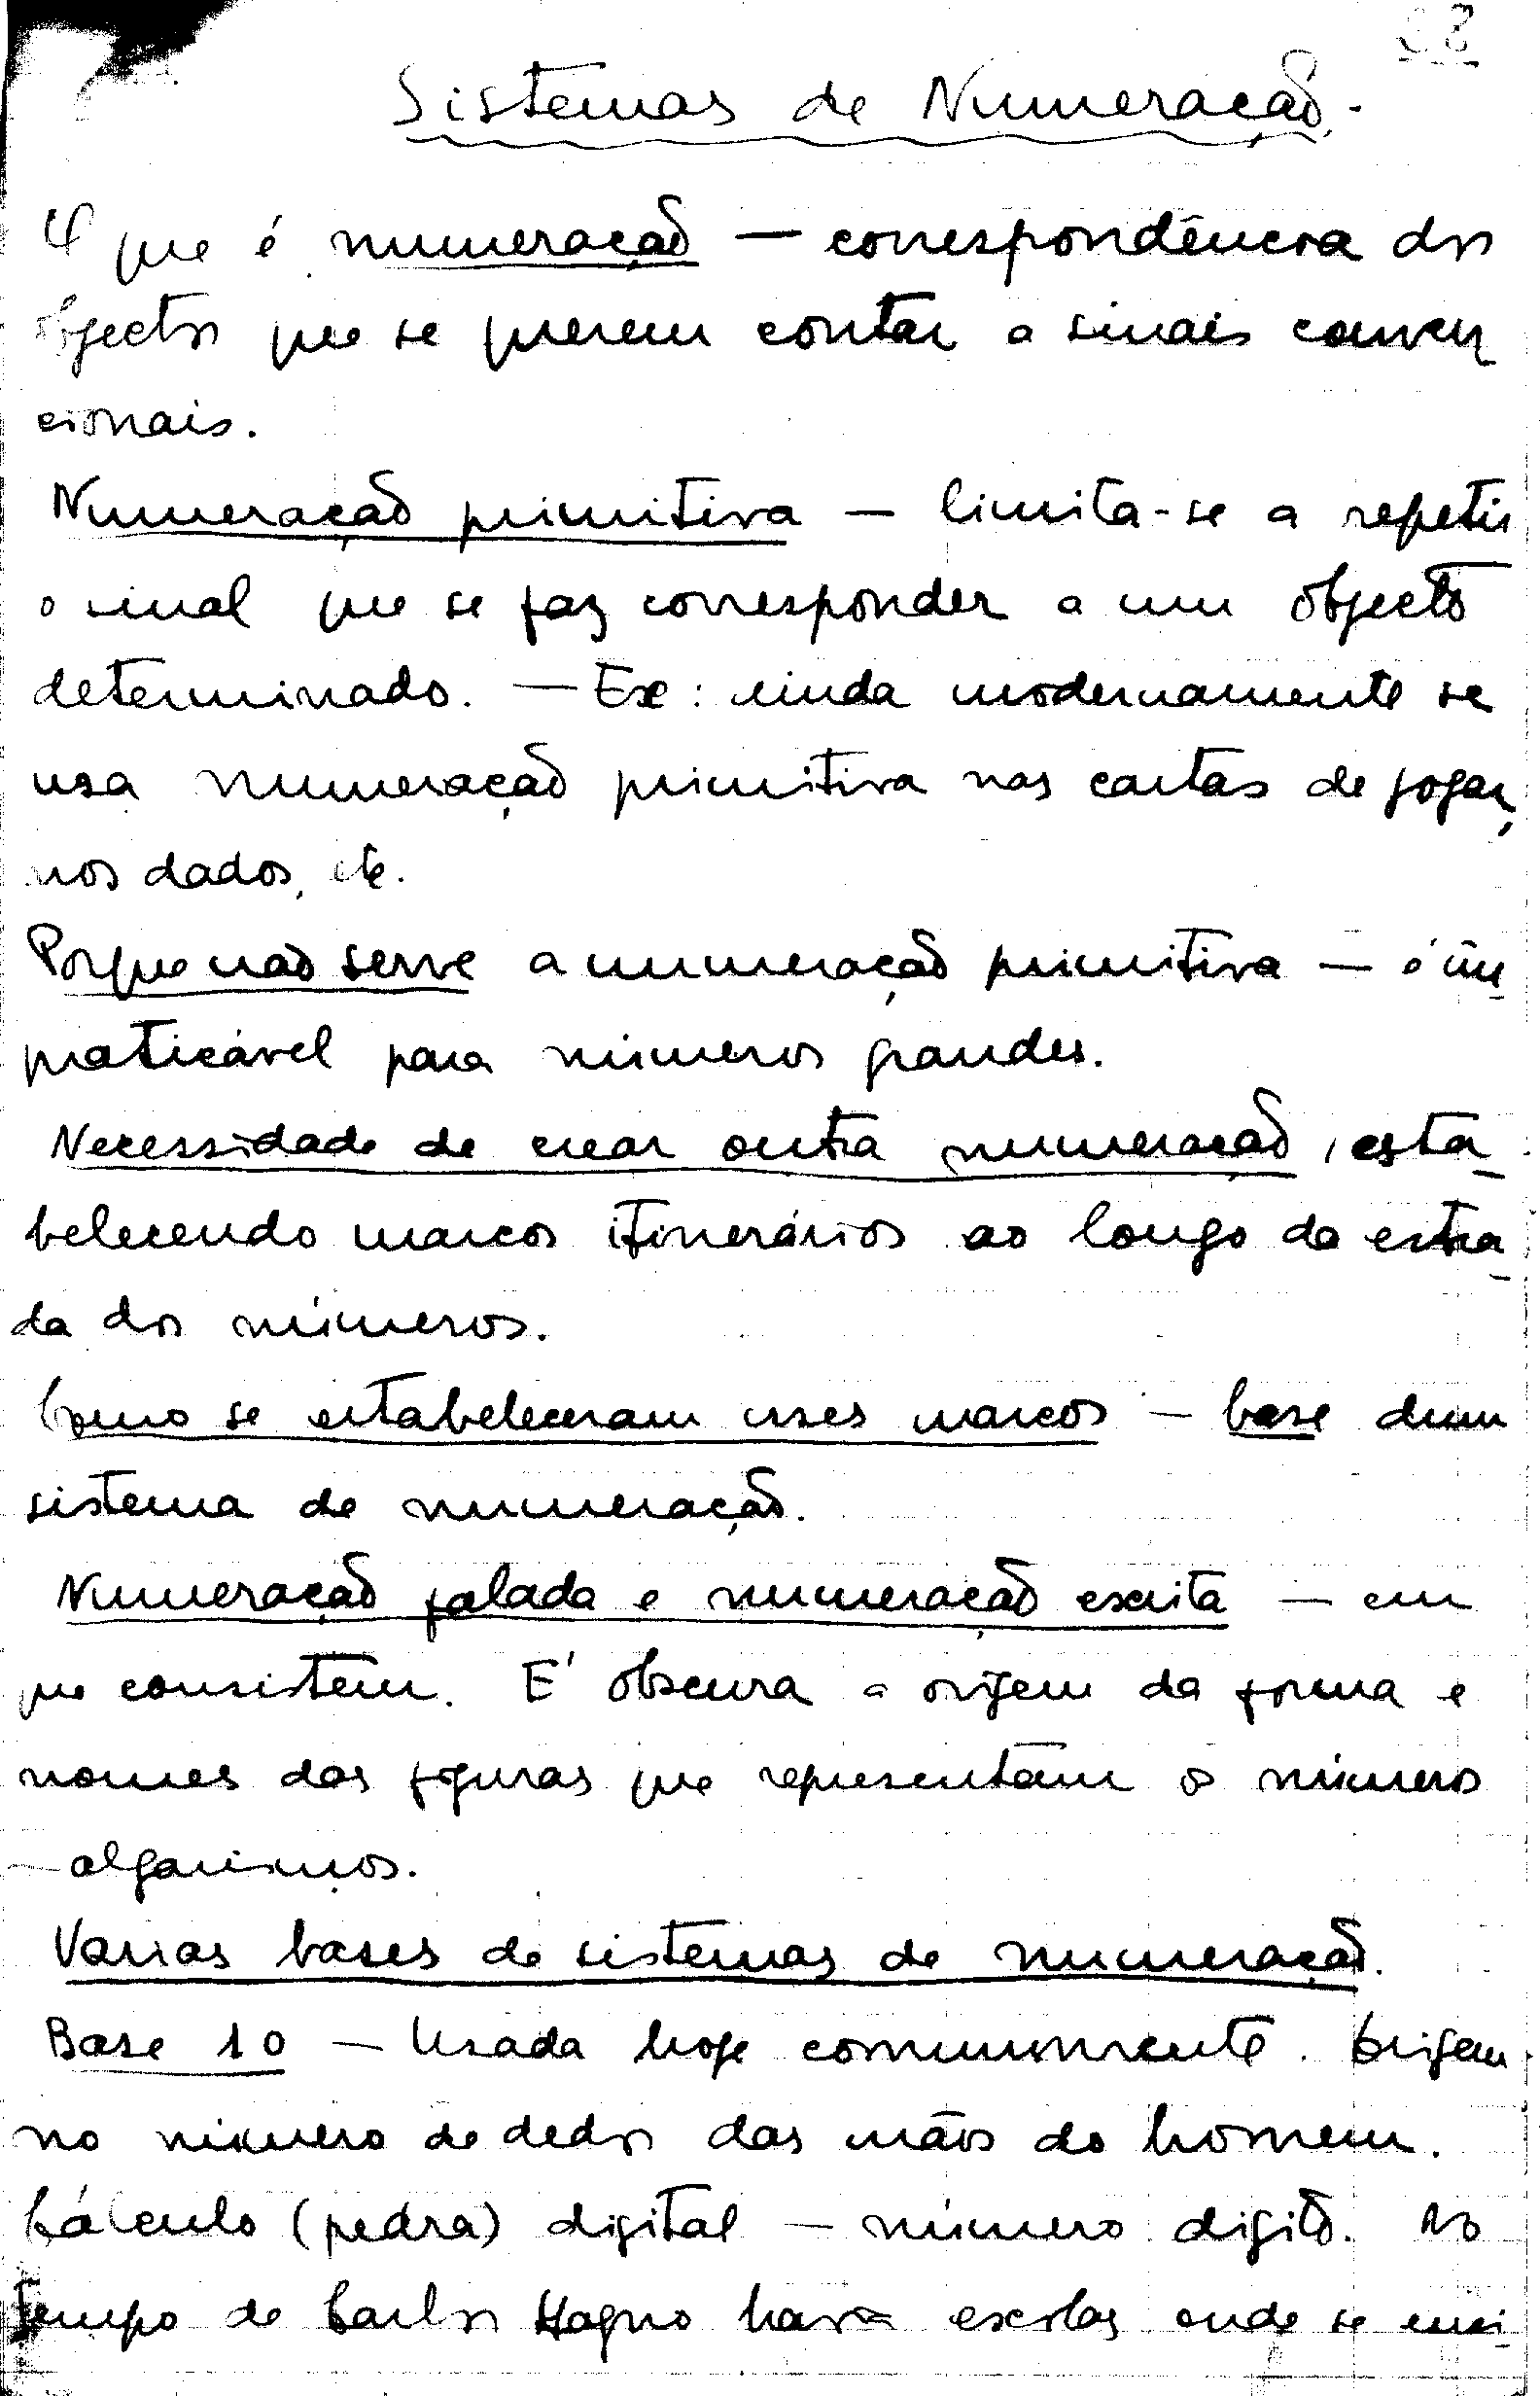 Sistemas de Numeração.
O que é numeração — correspondência dos
objectos que se querem contar a sinais conven
cionais.
Numeração primitiva — limita-se a repetir
o sinal que se faz corresponder a um objecto
determinado. — Ex: ainda modernamente se
usa numeração primitiva nas cartas de jogar,
nos dados, etc.
Porque não serve a numeração primitiva — é im
praticável para números grandes.
Necessidade de crear outra numeração, esta
belecendo marcos itinerários ao longo da estra
da dos números.
Como se estabeleceram esses marcos — base dum
sistema de numeração.
Numeração falada e numeração escrita — em
que consistem. E' obscura a origem da forma e
nomes das figuras que representam os números
— algarismos.
Varias bases de sistemas de numeração.
Base 10 — Usada hoje communmente. Origem
no número de dedos das mãos do homem.
Cálculo (pedra) digital — número digito. No
tempo de Carlos Magno havia escolas onde se ensi